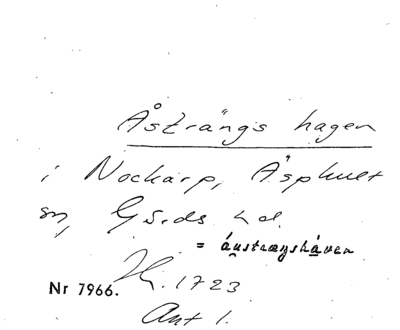 Åsträngs hagen
i Nockarp, Äsphult
sn, Gärds hd.
= áustrængshaven
Nr 7966. 1723
Ant 1.